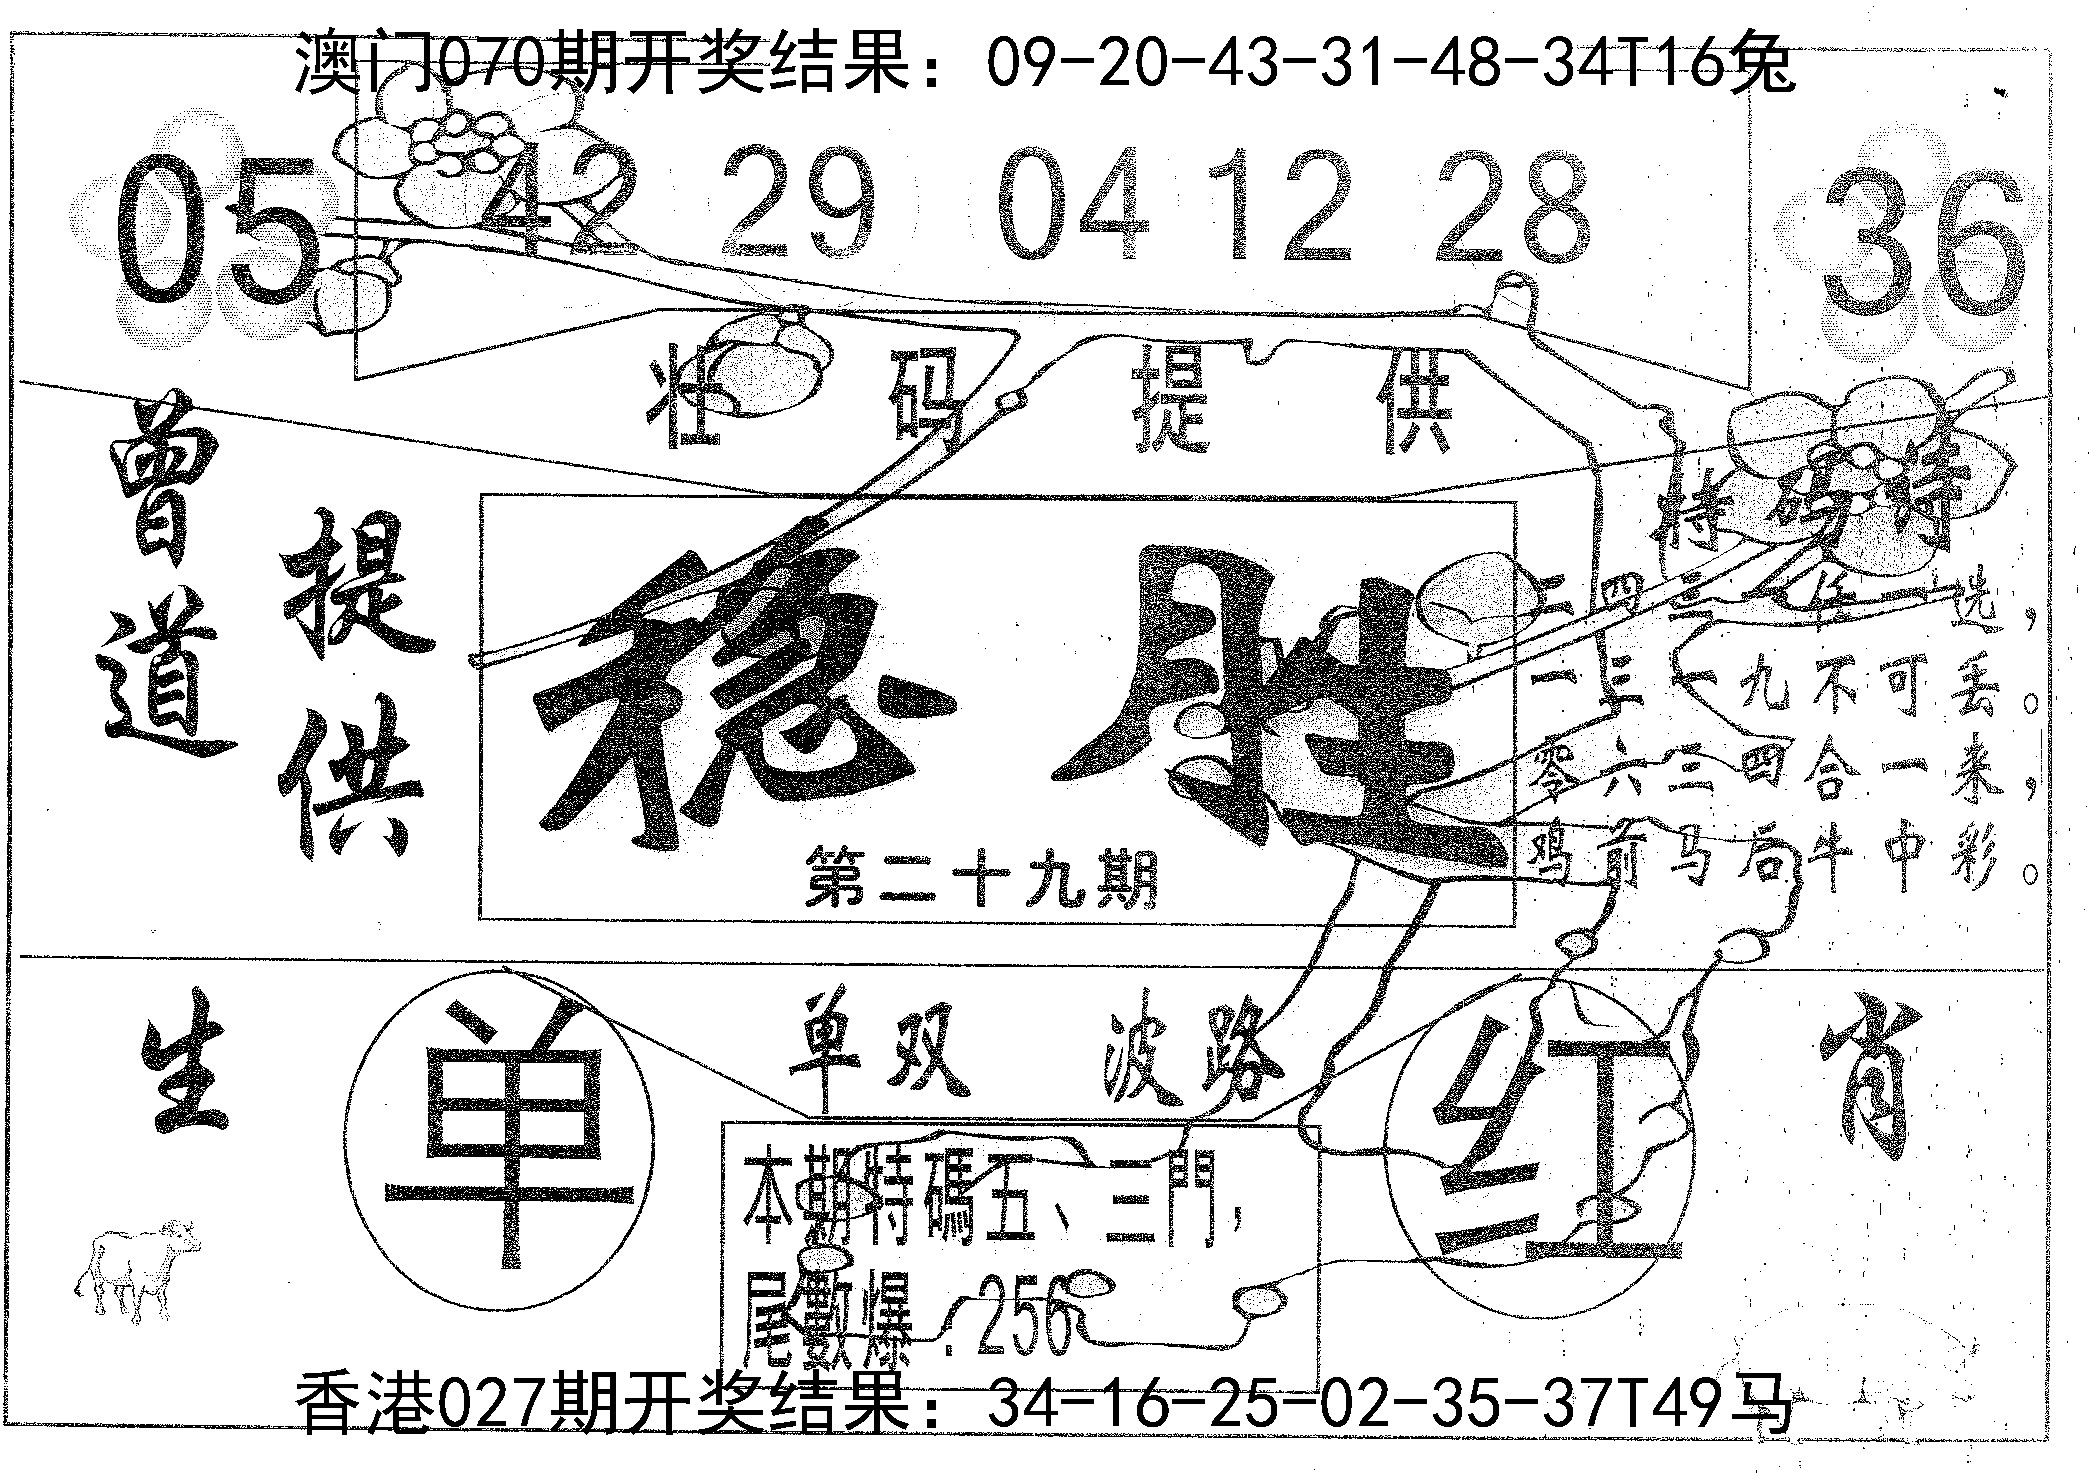 澳门070期开奖结果：09-20-43-31-48-34T16兔
05 42 29 04 12 28 36
壮码提供
曾道
提供
稳胜
第二十九期
特码诗
二四三 任一选，
一三一九不可丢。
零六三四合一来，
鸡前马后牛中彩。
生
单
单双 波路
红
肖
本期特碼五、三門，
尾數爆:256
香港027期开奖结果：34-16-25-02-35-37T49马